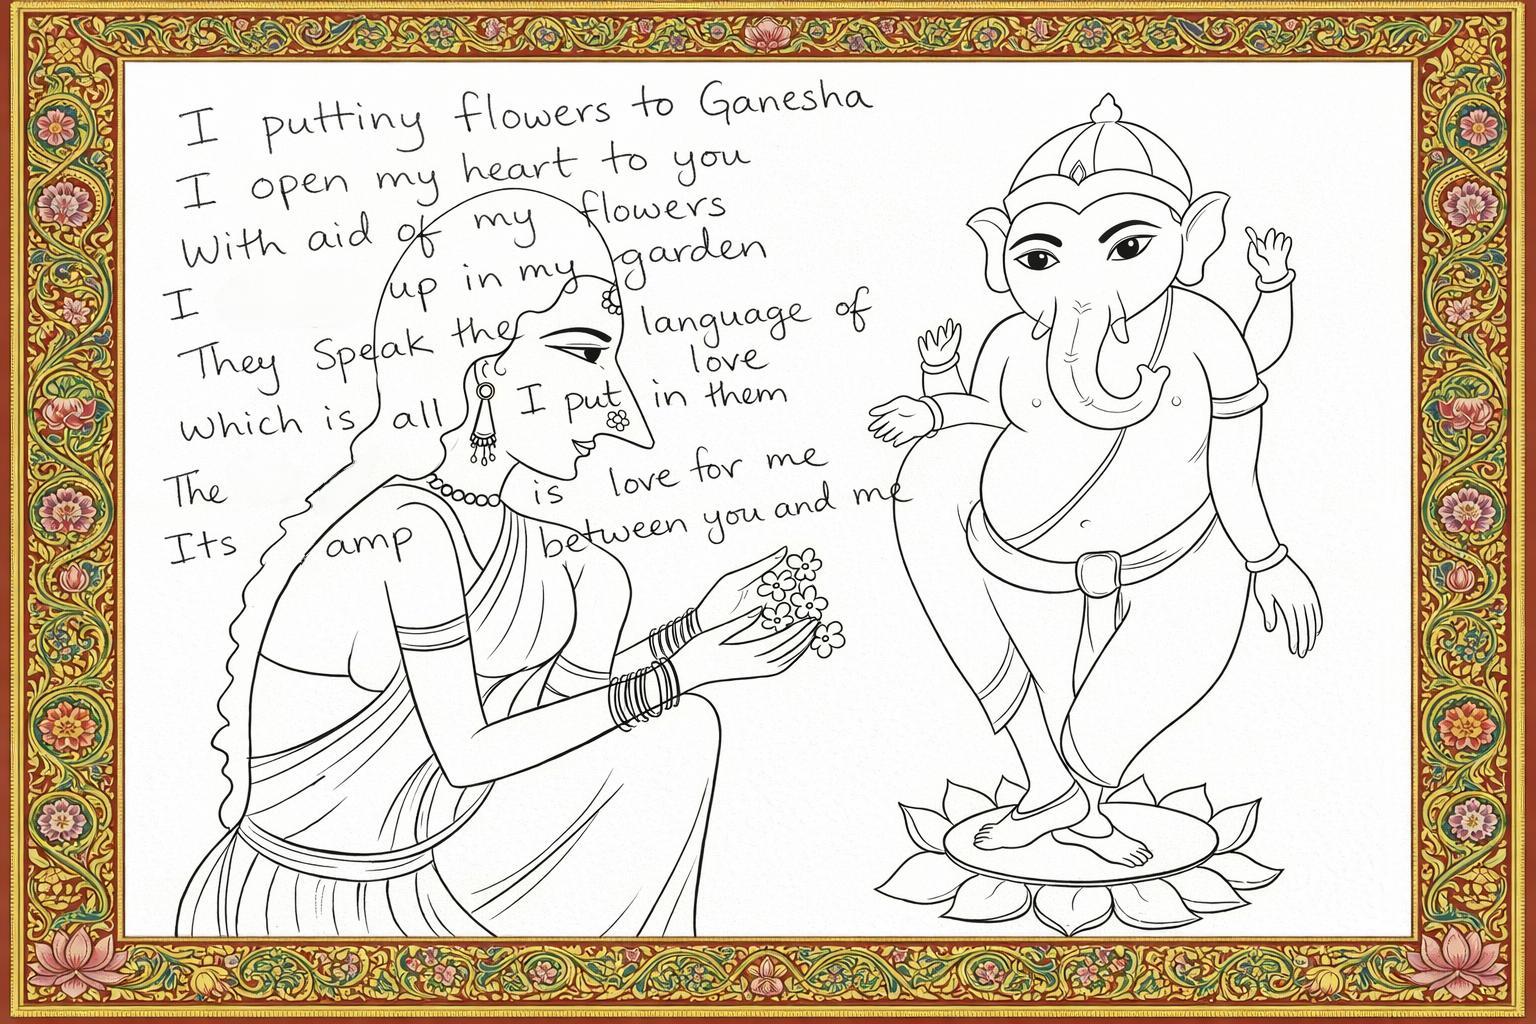 I putting flowers to Ganesha
I open my heart to you
With aid of my flowers
I up in my garden
They Speak the language of
love
which is all I put in them
The is love for me
Its amp between you and me